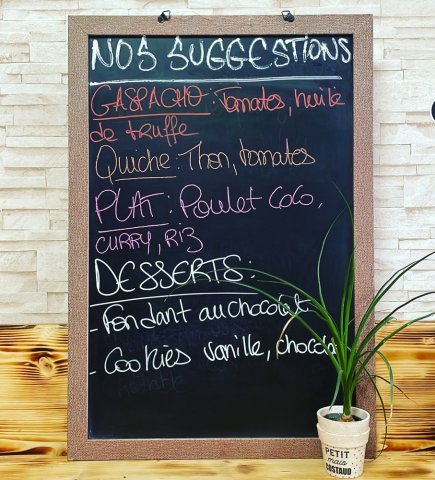 NOS SUGGESTIONS
GASPACHO: Tomates, huile
de truffe
Quiche: Thon, tomates
PLAT: Poulet Coco,
CURRY, RIZ
DESSERTS:
- Fondant au chocolat
- Cookies vanille, chocolat
PETIT
mais
COSTAUD